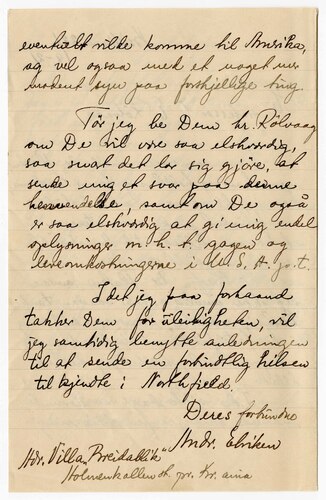 eventuelt vilde komme til Amerika,
og vel ogsaa med et noget mer
moderat syn paa forskjellige ting.
Tör jeg be Dem hr. Rölvaag
om De vil vore saa elskvördig,
saa snart det lar sig gjöre, at
sende mig et svar paa denne
henvendelse, samt om De også
er saa elskvördig at gi mig endel
oplysninger m. h. t. gagen og
leveomkostningerne i U. S. A. p. t.
Idet jeg paa forhaand
takker Dem for uleiligheten, vil
jeg samtidig benytte anledningen
til at sende en forbindtlig hilsen
til kjendte i Northfield.
Deres forbindtne
Andr. Elviken
Adr. "Villa Breidablik"
Holmenkollen st. pr. Kr. ania